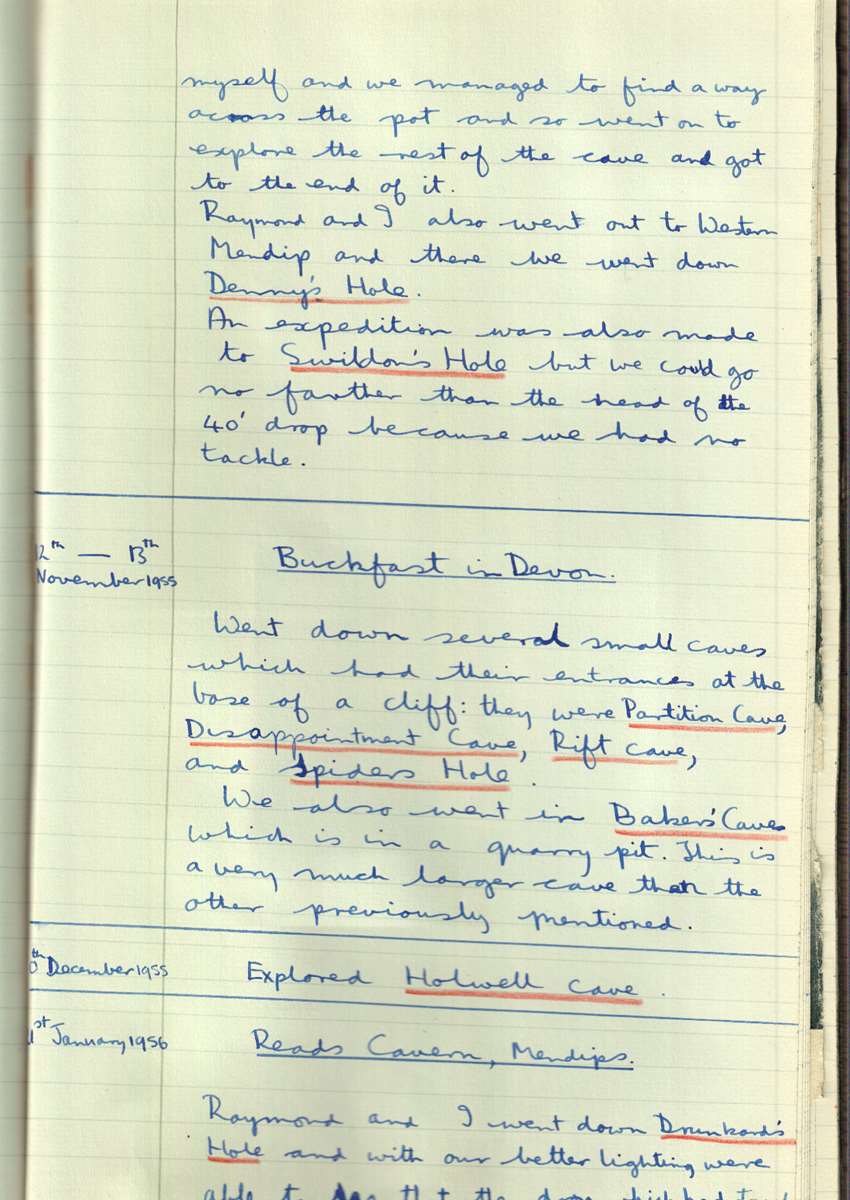 myself and we managed to find a way
across the pot and so went on to
explore the rest of the cave and got
to the end of it.
Raymond and I also went out to Western
Mendip and there we went down
Denny's Hole.
An expedition was also made
to Swildon's Hole but we could go
no farther than the head of the
40' drop because we had no
tackle.
2th — 13th
November 1955
Buckfast in Devon.
Went down several small caves
which had their entrances at the
base of a cliff: they were Partition Cave,
Disappointment Cave, Rift cave,
and Spiders Hole.
We also went in Bakers' Caves
which is in a quarry pit. This is
a very much larger cave than the
other previously mentioned.
0th December 1955
Explored Holwell Cave.
1st January 1956
Reads Cavern, Mendips.
Raymond and I went down Drunkard's
Hole and with our better lighting were
able to see that the drop which had